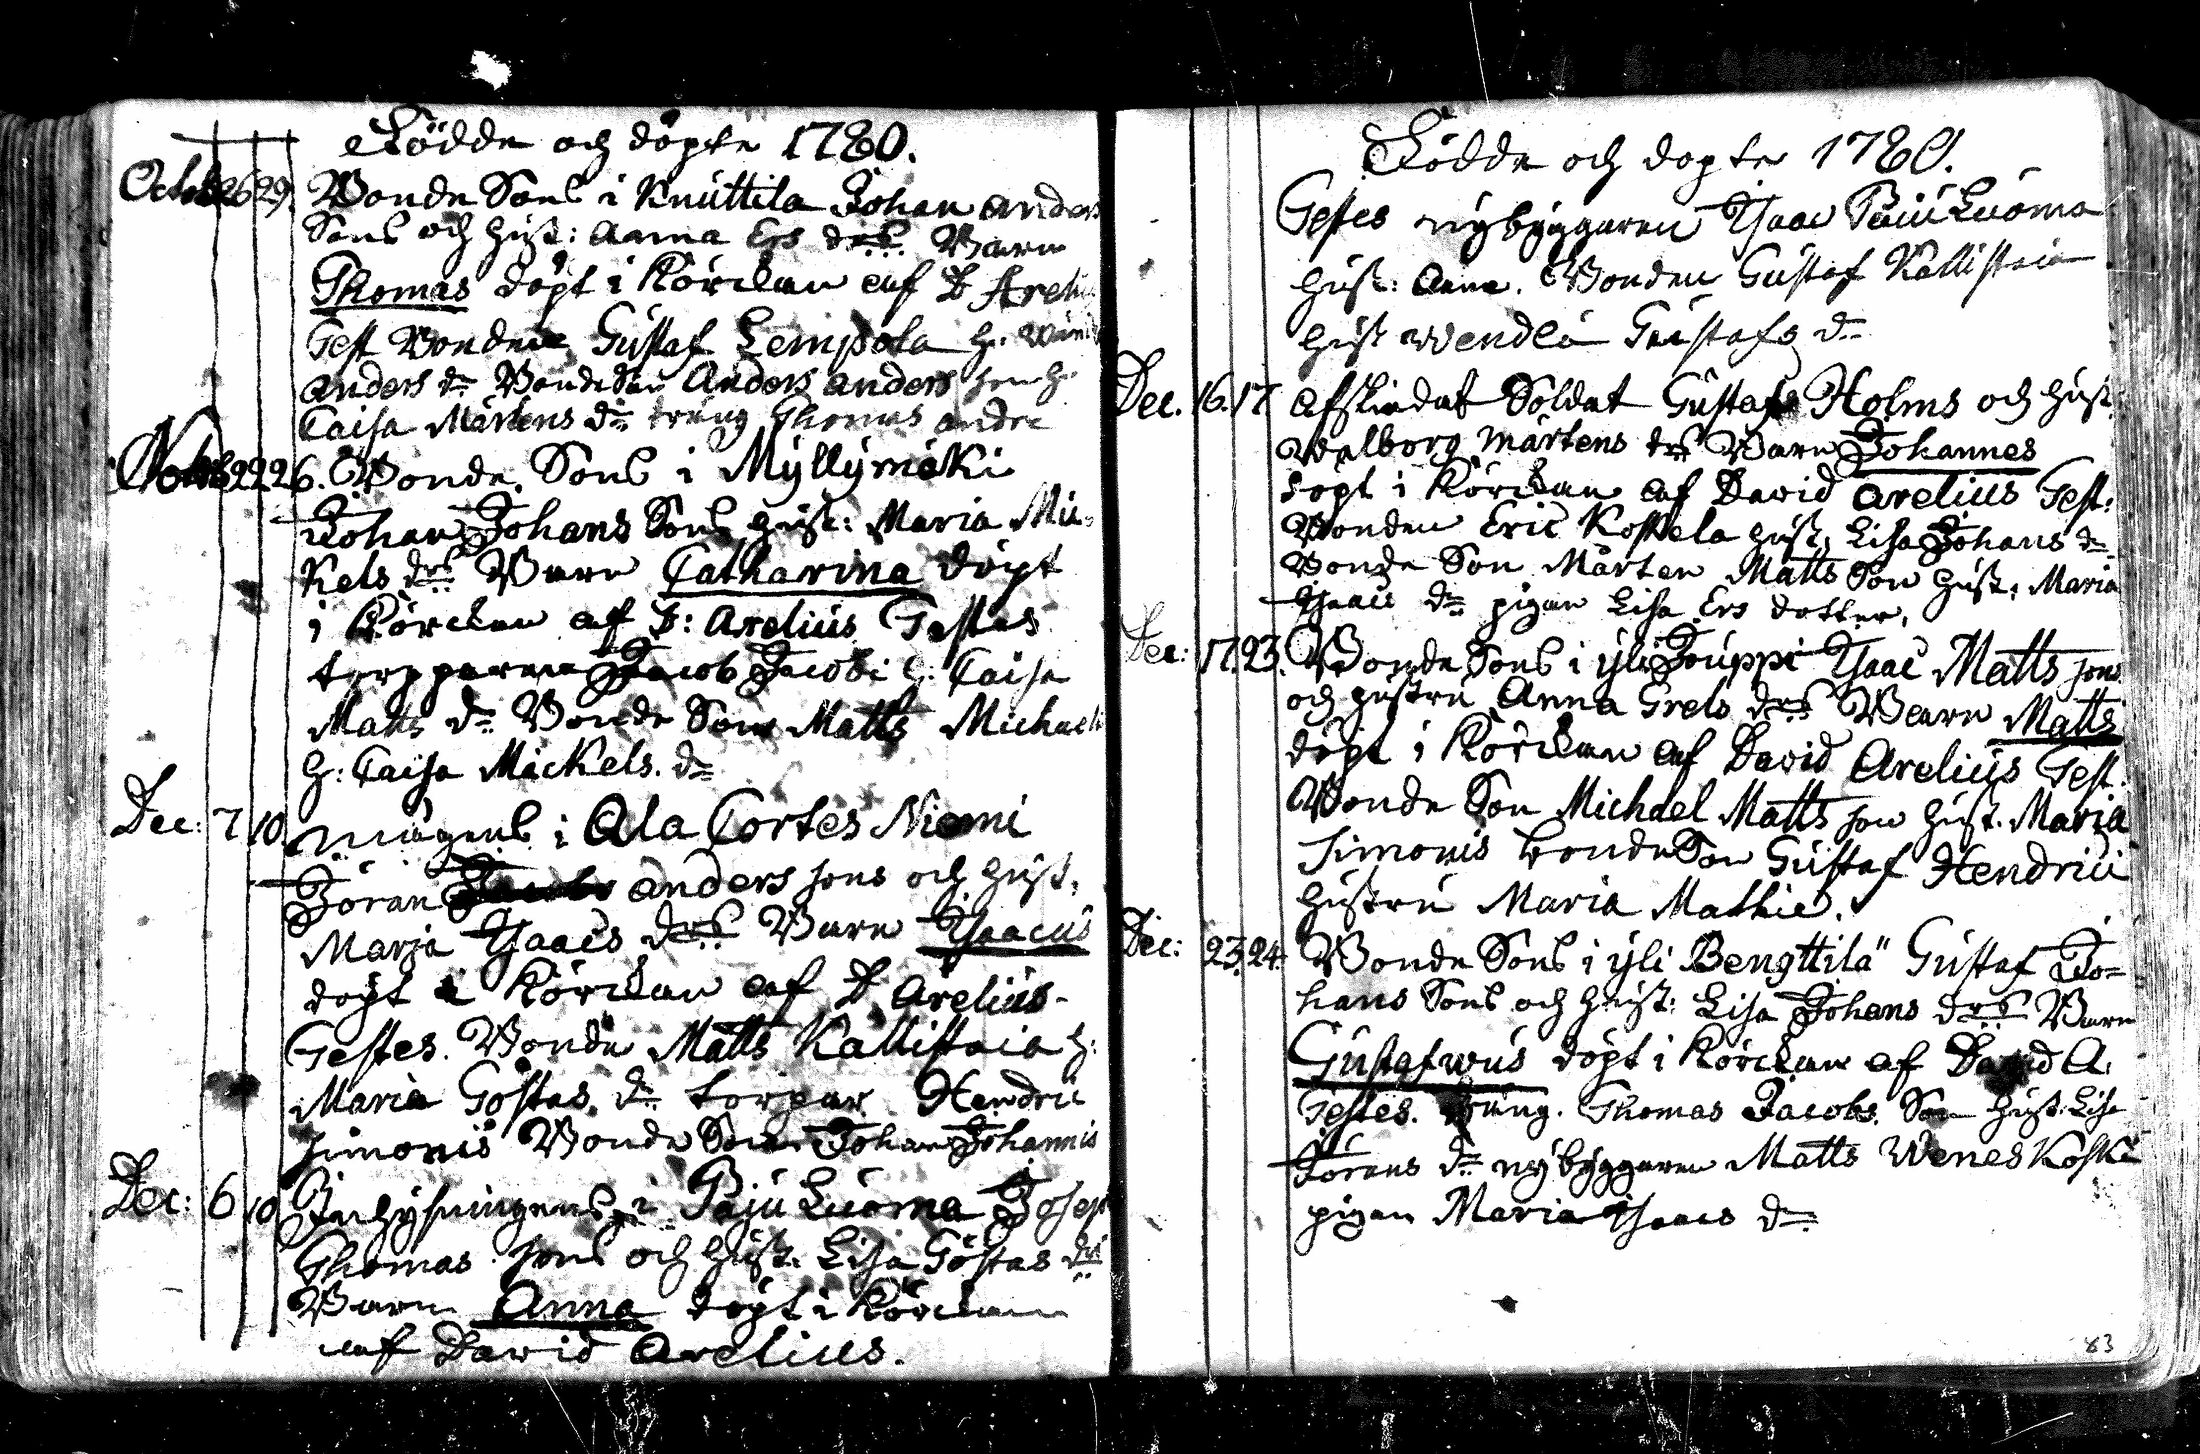 Födde och döpte 1780.
Octob 26 29. Bonde Sons i Knuttila Johan Anders
Sons och hust: Anna Ers drs Barn
Thomas döpt i Körckan af D Areli
Test Bonden Gustaf Lempola h.
Anders dr Bonde Son Anders Anders son h.
Caisa Mårtens dr Thomas Andre
22 26. Bonde Sons i Myllymäki
Johan Johans Sons hust: Maria Mic-
kels drs Barn Catharina döpt
i Körckan af D: Arelius Testes
torpparen Jacob Jacobi h: Caisa
Matts dr Bonde Son Matts Michael
h: Caisa Mickels dr
Dec: 7 10. mågens i Ala Cortes Niemi
Jöran Anders sons och hust,
Maria Isaacs drs Barn Isaacus
döpt i Körckan af D Arelius
Testes. Bonde Matts Kallistaia h:
Maria Göstas dr torpar Hendric
Simonis Bonde Son Johan Johannis
Dec: 6 10 Inhysningens i Paju Luoma Josep
Thomas sons och hust: Lisa Göstas drs
Barn Anna döpt i Körckan
af David Arelius.
Födde och döpte 1780.
Testes nybyggaren Isaac Paju Luoma
hust: Anna. Bonden Gustaf Kallistaia
hust Wendla Gustafs dr
Dec. 16. 17 afskedat Soldat Gustaf Holms och hust
Walborg Mårtens drs Barn Johannes
döpt i Körckan af David Arelius Test:
Bonden Eric Koskela hust: Lisa Johans dr
Bonde Son Mårten Matts Son hust: Maria
Isaacs dr pigan Lisa Ers dotter.
Dec: 17. 23. Bonde Sons i yli Jouppi Isaac Matts sons
och hustru Anna Grels drs Barn Matts
döpt i Körckan af David Arelius Test.
Bonde Son Michael Matts son hust. Maria
Simonis bonde Son Gustaf Hendrici
hustru Maria Mathiæ.
Dec: 23. 24. Bonde Sons i yli Bengttilä Gustaf Jo=
hans Sons och hust: Lisa Johans drs Barn
Gustafwus döpt i Körckan af David A.
Testes. Thomas Jacobs Son hust: Lisa
Jörans dr nybyggaren Matts Weneskoski
pigan Maria Isaacs dr
83